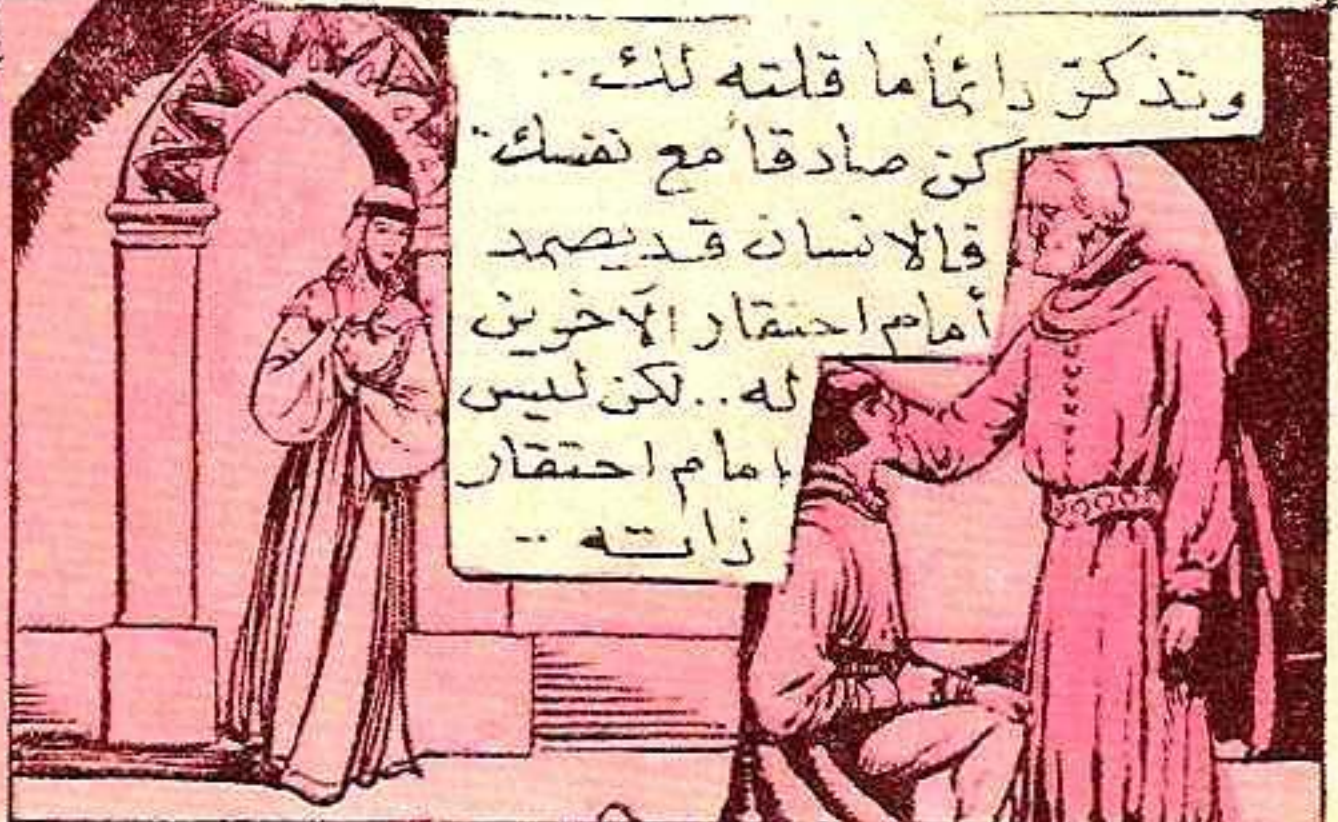 وتذكرّ دائماً ما قلته لك..
كن صادقاً مع نفسك..
فالانسان قد يصمد
أمام احتقار الآخرين
له.. لكن ليس
امام احتقار
ذاته..